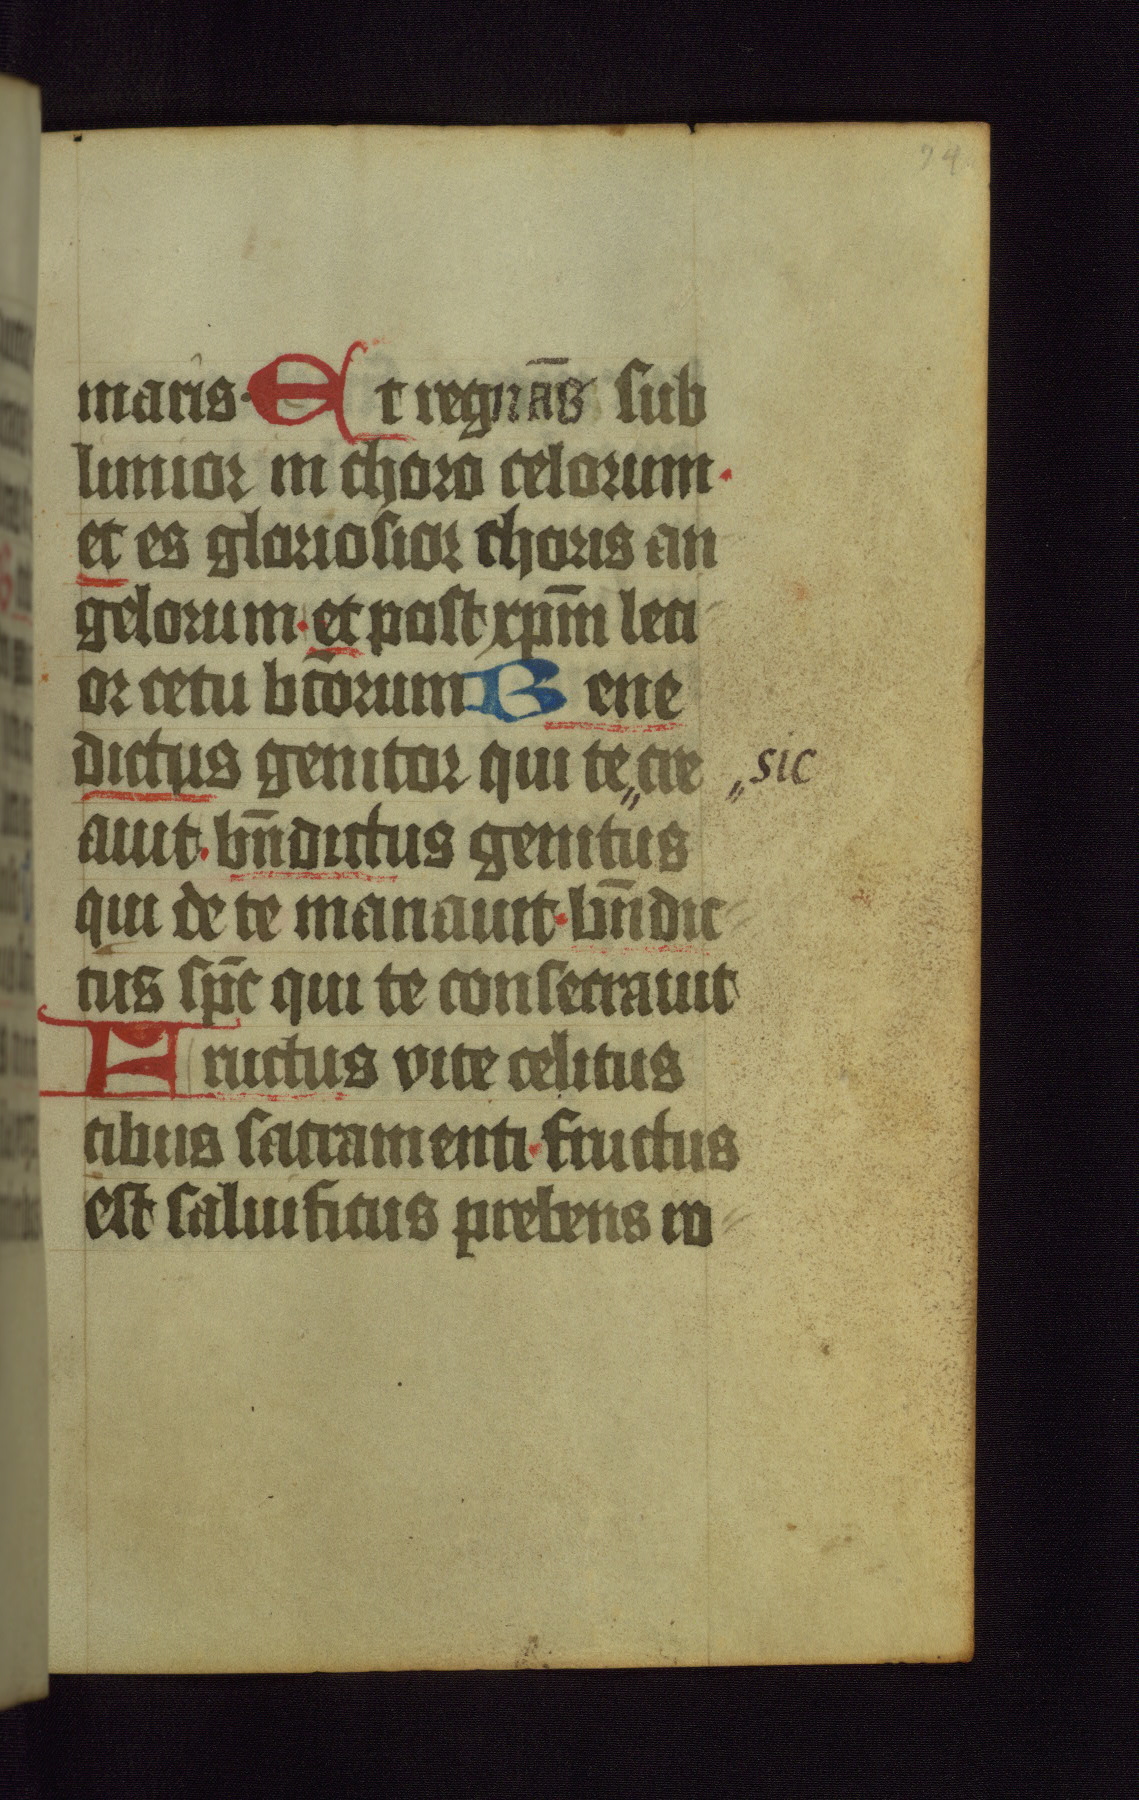 74
maris. Et regnās sub
limior in choro celorum.
et es gloriosior choris an
gelorum. et post xp̄m leti
or cetu bt̄orum Bene
dictus genitor qui te „ cre „ sic
auit. bn̄dictus genitus
qui de te manauit. bn̄dic
tus sp̄c qui te consecrauit
Fructus vite celitus
cibus sacramenti. fructus
est saluificus prebens io